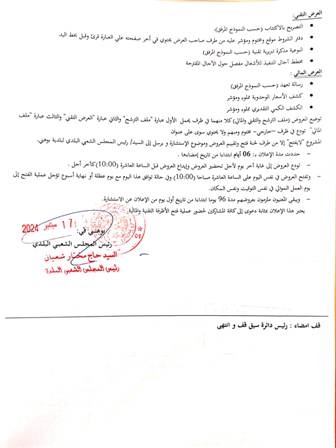 العرض التقني:
- التصريح بالاكتتاب (حسب النموذج المرفق).
- دفتر الشروط موقع ومختوم ومؤشر عليه من طرف صاحب العرض يحتوي في آخر صفحته على العبارة قرئ وقبل بخط اليد.
- النوعية مذكرة تبريرية تقنية (حسب النموذج المرفق)
- مخطط آجال التنفيذ للأشغال مفصل حول الآجال المقترحة
العرض المالي:
- رسالة تعهد (حسب النموذج المرفق)
- كشف الأسعار الوحدوية مملوء ومؤشر
- الكشف الكمي التقديري مملوء ومؤشر
توضع العروض (ملف الترشح والتقني والمالي) كلا منهما في ظرف يحمل الأول عبارة "ملف الترشح" والثاني عبارة "العرض التقني" والثالث عبارة "ملف
المالي" توزع في ظرف خارجي مختوم ومبهم ولا يحتوي سوى على عنوان
المشروع "لايفتح" إلا من طرف لجنة فتح وتقييم العروض وموضوع الاستشارة و يرسل إلى السيد/ رئيس المجلس الشعبي البلدي لبلدية بوهني.
- حددت مدة الإعلان بـ: 06 أيام ابتداءا من تاريخ إمضاءها.
- تودع العروض إلى غاية آخر يوم لأجل تحضير العروض وإيداع العروض قبل الساعة العاشرة (10:00) كآخر أجل.
- وتفتح العروض في نفس اليوم على الساعة العاشرة صباحا (10:00) وفي حالة توافق هذا اليوم مع يوم عطلة أو نهاية أسبوع تؤجل عملية الفتح إلى
يوم العمل الموالي في نفس التوقيت ونفس المكان.
- ويبقى المعنيون ملزمون بعروضهم مدة 96 يوما ابتداءا من تاريخ أول يوم من الإعلان عن الاستشارة.
يعتبر هذا الإعلان بمثابة دعوى إلى كافة المشاركين لحضور عملية فتح الأظرفة التقنية والمالية.
17 سبتمبر 2024
في:
رئيس المجلس الشعبي البلدي
السيد حاج مختار شعبان
رئيس المجلس الشعبي البلدي
قف امضاء : رئيس دائرة سيق قف و انتهى